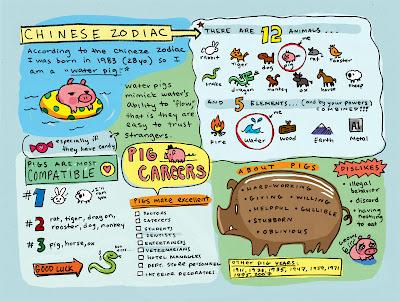 CHINESE ZODIAC
According to the chinese zodiac
I was born in 1983 (28yo) so I
am a "water pig!"
water pigs
mimick water's
ability to "flow,"
that is they are
easy to trust
strangers.
especially if
they have candy
THERE ARE 12 ANIMALS...
me
rabbit
tiger
dog
pig
rat
rooster
snake
dragon
monkey
ox
horse
sheep
AND 5 ELEMENTS... (and by your powers)
COMBINED!!!
Fire
water
wood
Earth
Al
Metal
PIGS ARE MOST
COMPATIBLE
#1
#2 rat, tiger, dragon,
rooster, dog, monkey
#3 pig, horse, ox
GOOD LUCK
PIG
CAREERS
PIGS MAKE EXCELLENT
DOCTORS
CATERERS
STUDENTS
DENTISTS
ENTERTAINERS
VETERINARIANS
HOTEL MANAGERS
DEPT. STORE PERSONNEL
INTERIOR DECORATORS
ABOUT PIGS
HARD-WORKING
GIVING • WILLING
HELPFUL • GULLIBLE
STUBBORN
OBLIVIOUS
OTHER PIG YEARS:
1911, 1923, 1935, 1947, 1959, 1971
1995, 2007
DISLIKES
• illegal
behavior
• discord
• having
nothing to
eat